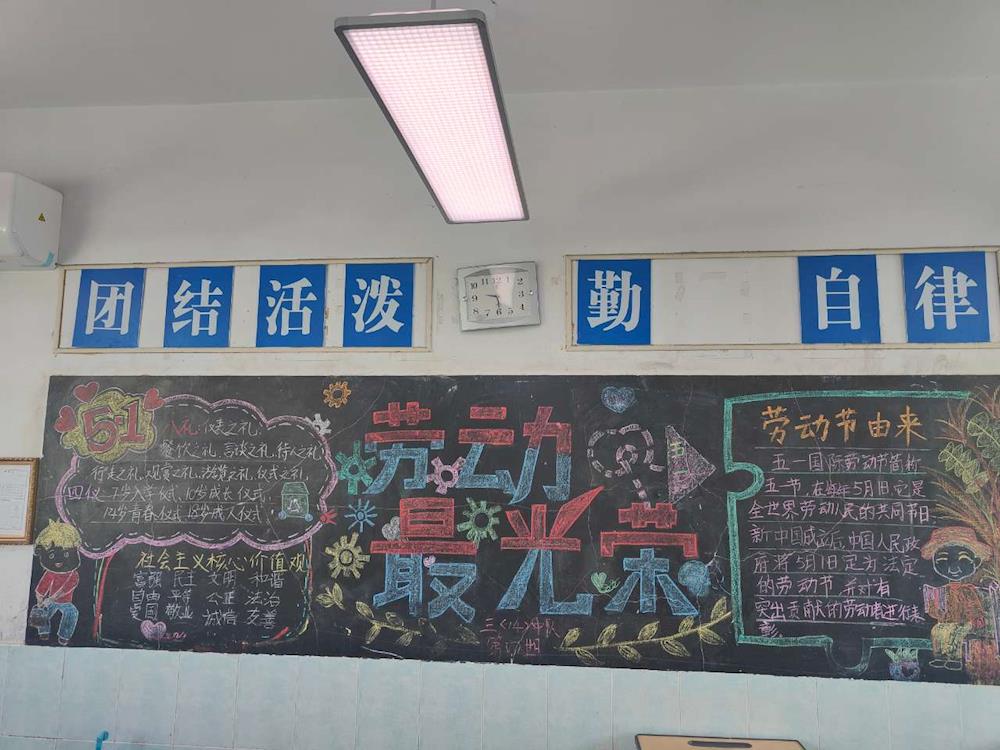 团结活泼
勤
自律
5·1
八礼:仪表之礼,
餐饮之礼、言谈之礼、待人之礼
行走之礼、观赏之礼、游览之礼、仪式之礼
四仪 7岁入学仪式、10岁成长仪式
14岁青春仪式 18岁成人仪式
社会主义核心价值观
富强 民主 文明 和谐
自由 平等 公正 法治
爱国 敬业 诚信 友善
劳动
最光荣
三〈14〉中队
劳动节由来
五一国际劳动节简称
五一节,在每年5月1日,它是
全世界劳动人民的共同节日.
新中国成立后,中国人民政
府将5月1日定为法定
的劳动节,并对有
突出贡献的劳动者进行表
彰